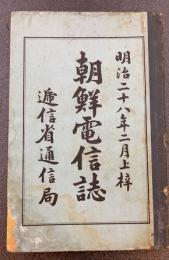 明治二十八年二月上梓
朝鮮電信誌
遞信省通信局